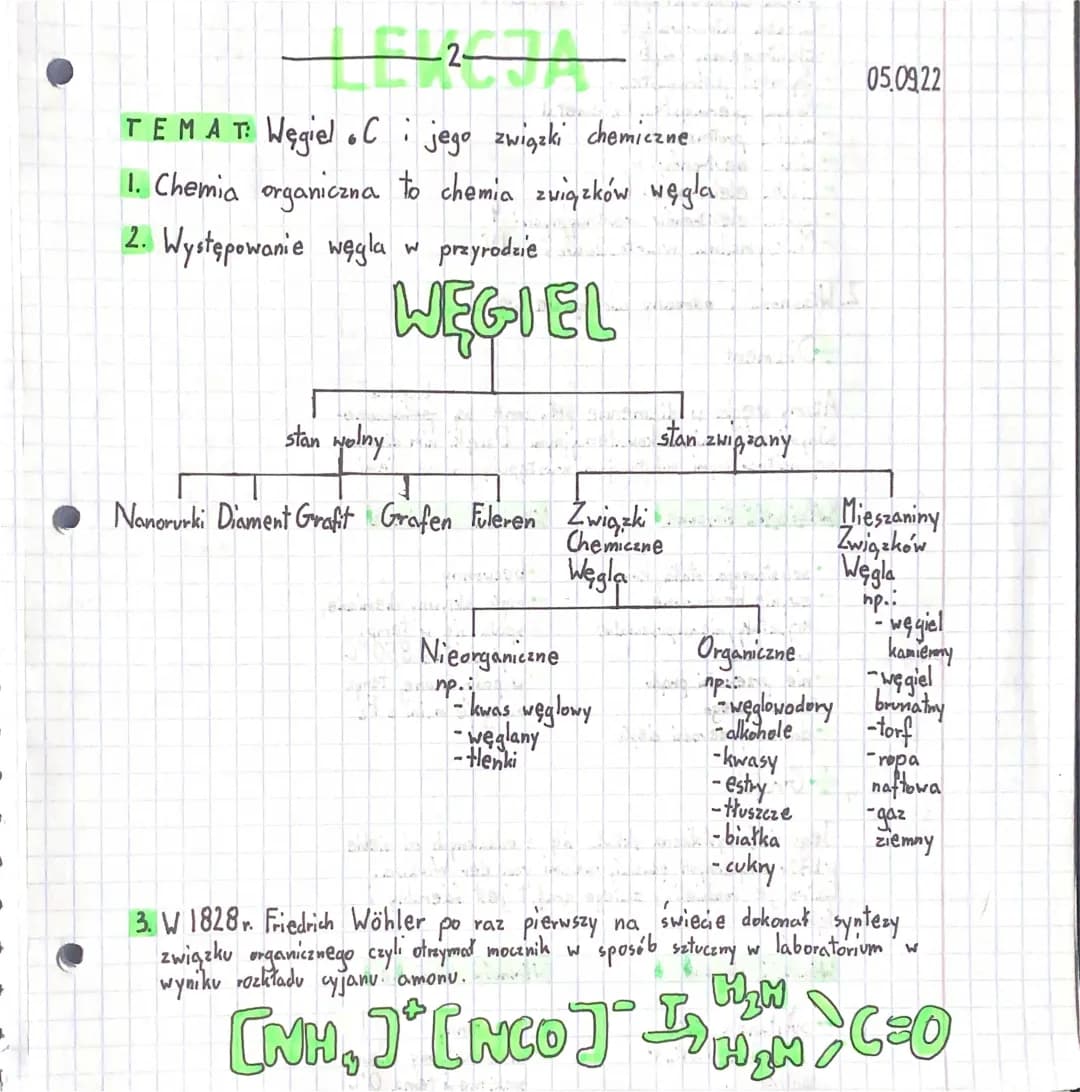 LEKCJA
2
05.09.22
TEMAT: Węgiel ₆C i jego związki chemiczne.
1. Chemia organiczna to chemia związków węgla
2. Występowanie węgla w przyrodzie
WĘGIEL
stan wolny
stan związany
Nanorurki Diament Grafit Grafen Fuleren
Związki
Chemiczne
Węgla
Mieszaniny
Związków
Węgla
np.:
- węgiel
kamienny
- węgiel
brunatny
- torf
- ropa
naftowa
- gaz
ziemny
Nieorganiczne
np.:
- kwas węglowy
- węglany
- tlenki
Organiczne
np.:
- węglowodory
- alkohole
- kwasy
- estry
- tłuszcze
- białka
- cukry
3. W 1828r. Friedrich Wöhler po raz pierwszy na świecie dokonał syntezy
związku organicznego czyli otrzymał mocznik w sposób sztuczny w laboratorium w
wyniku rozkładu cyjanu amonu.
[NH₄]⁺[NCO]⁻ T→ H₂N H₂N >C=O